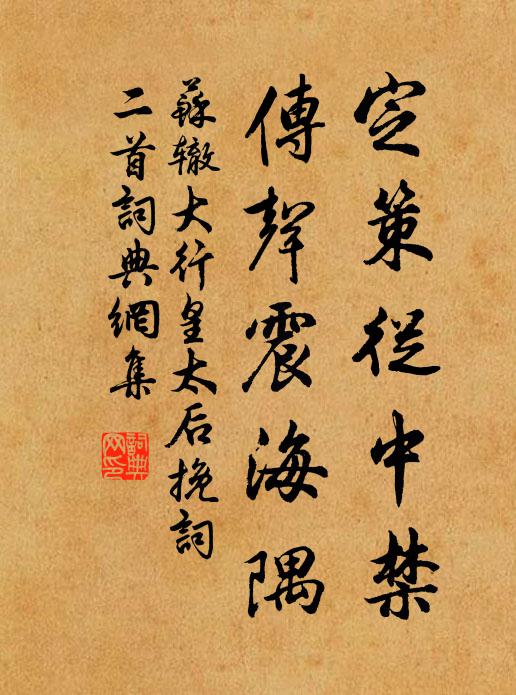 定策從中禁
傳聲震海隅
蘇辙大行皇太后挽詞
二首詞典網集
詞典网印